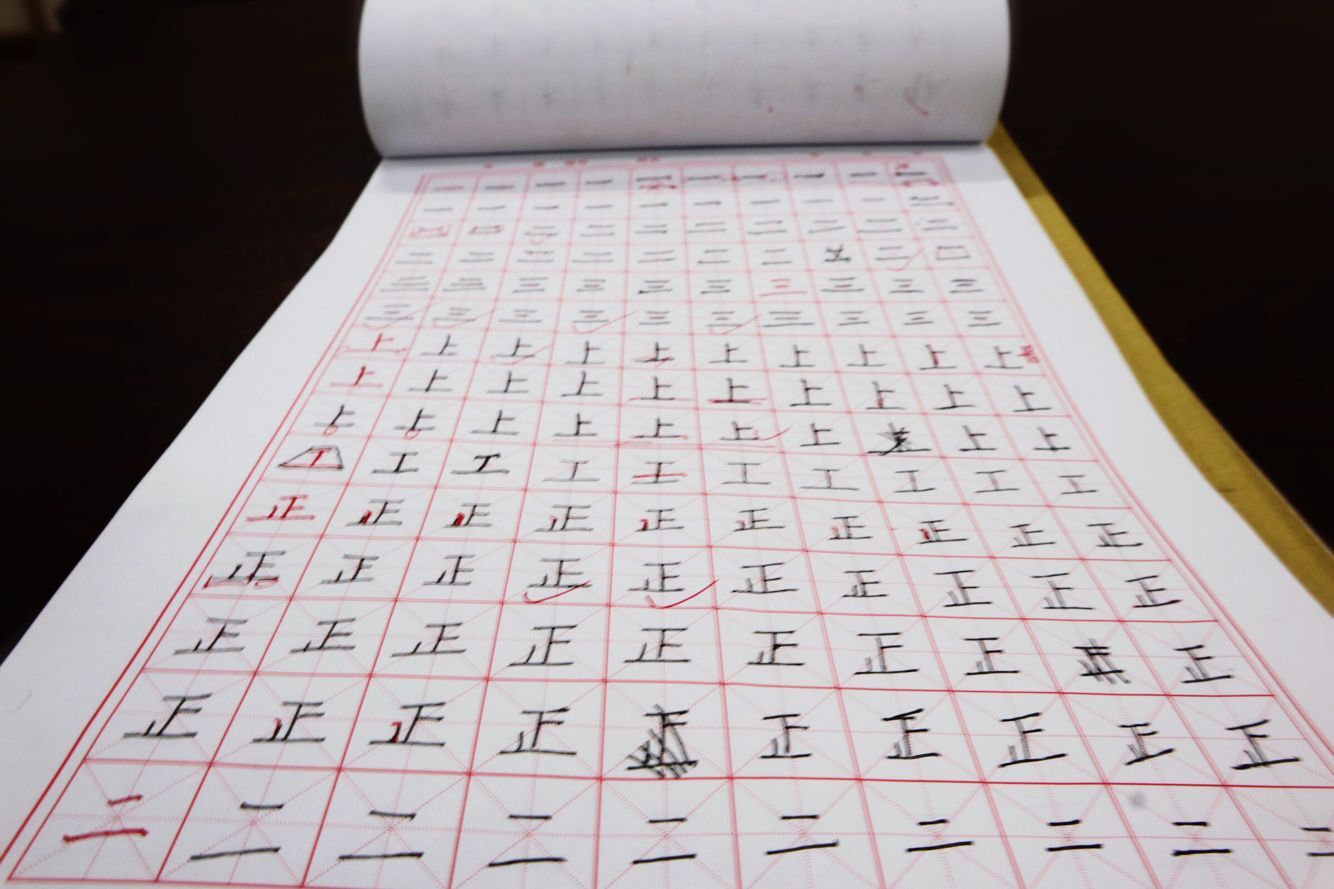 一一一一一一一一一一
一一一一一一一一一
二二二二二二二二二二
二二二二二二二二二
三三三三三三三三三三
三三三三三三三三三三
上上上上上上上上上上
上上上上上上上上上上
上上上上上上上上上
工工工工工工工工工工
正正正正正正正正正正
正正正正正正正正正正
正正正正正正正正正
正正正正正正正正正
二二二二二二二二二二